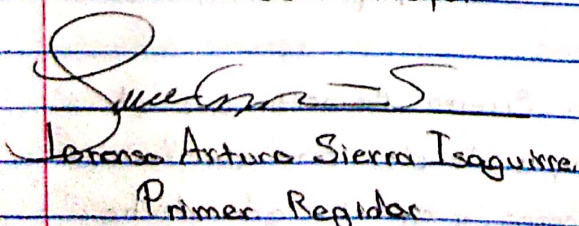 Lorenso Arturo Sierra Isaguirre.
Primer Regidor